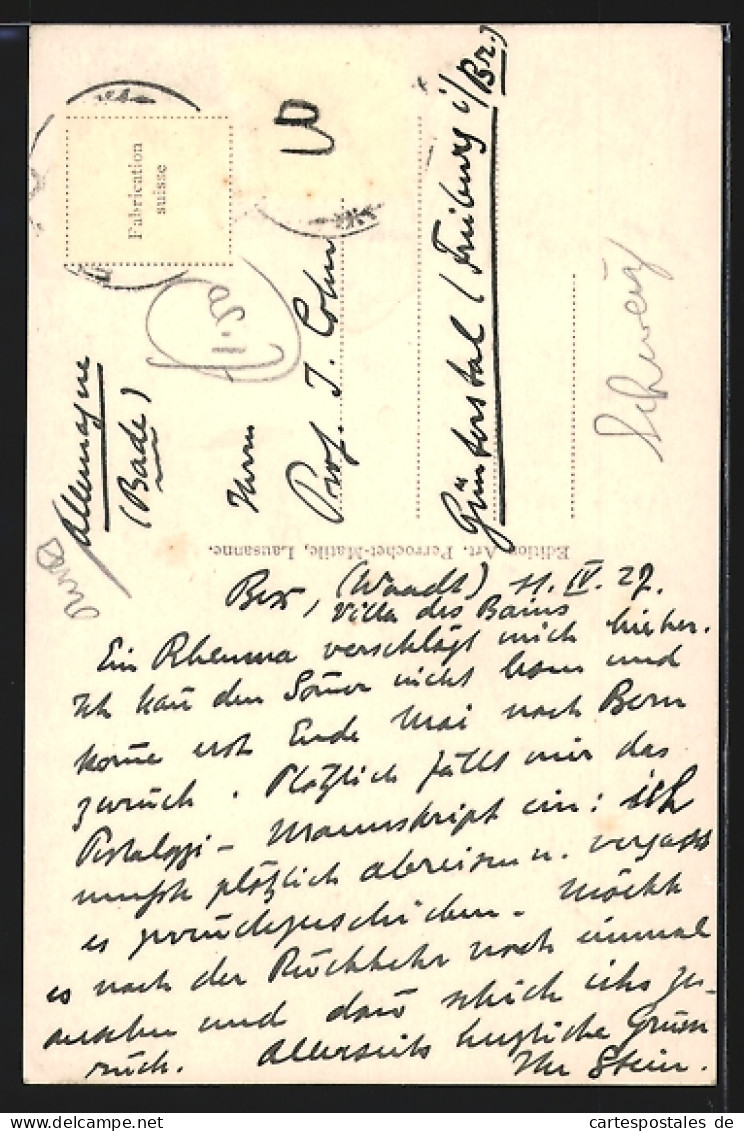 Fabrication
suisse
Allemagne
(Bade)
Herrn
Prof. J. Cohn
Günterstal (Freiburg i/Br.)
1.50
Schweiz
Edition Art. Perrochet-Matile, Lausanne.
Bex, (Waadt) 11. IV. 27.
Villa des Bains
Ein Rheuma verschlägt mich hieher.
Ich kann den Somer nicht lesen und
kome erst Ende Mai nach Bern
zurück. Plötzlich fällt mir das
Pestalozzi-Manuskript ein: ich
musste plötzlich abreisen u. vergass
es zurückzuschicken. Möchte
es nach der Rückkehr noch einmal
ansehen und dan schick ichs zu-
rück. Allerseits herzliche Grüsse
Ihr Stein.
cartespostales de